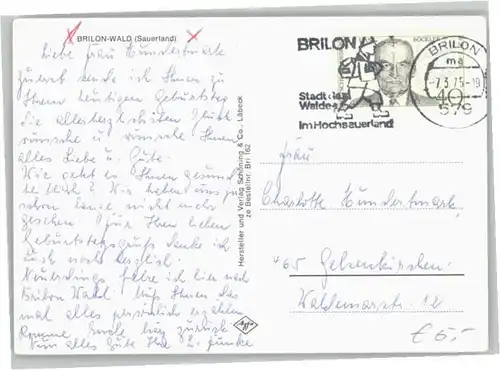 BRILON-WALD (Sauerland)
Liebe Frau Hundertmark
zuerst sende ich Ihnen zu
Ihrem heutigen Geburtstag
die allerherzlichsten Glück
wünsche u. wünsche Ihnen
alles Liebe u. Gute.
Wie geht es Ihnen gesund
heitlich? Wir haben uns ja
schon lange nicht mehr
gesehen. Für Ihren lieben
Geburtstagsgruß danke ich
auch noch herzlich.
Neuerdings fahre ich hier nach
Brilon Wald. Muß Ihnen das
mal alles persönlich erzählen
komme Ende zurück
Nun alles Gute Ihre
Hersteller und Verlag Schöning & Co., Lübeck
zu Bestellnr. Bri 162
Agfa
BRILON
Stadt des
Waldes
im Hochsauerland
BRILON
ma
-7.3.75-19
579
BÖCKLER
40
Frau
Charlotte Hundertmark
465 Gelsenkirchen
Waldemarstr. 12
€ 5,-